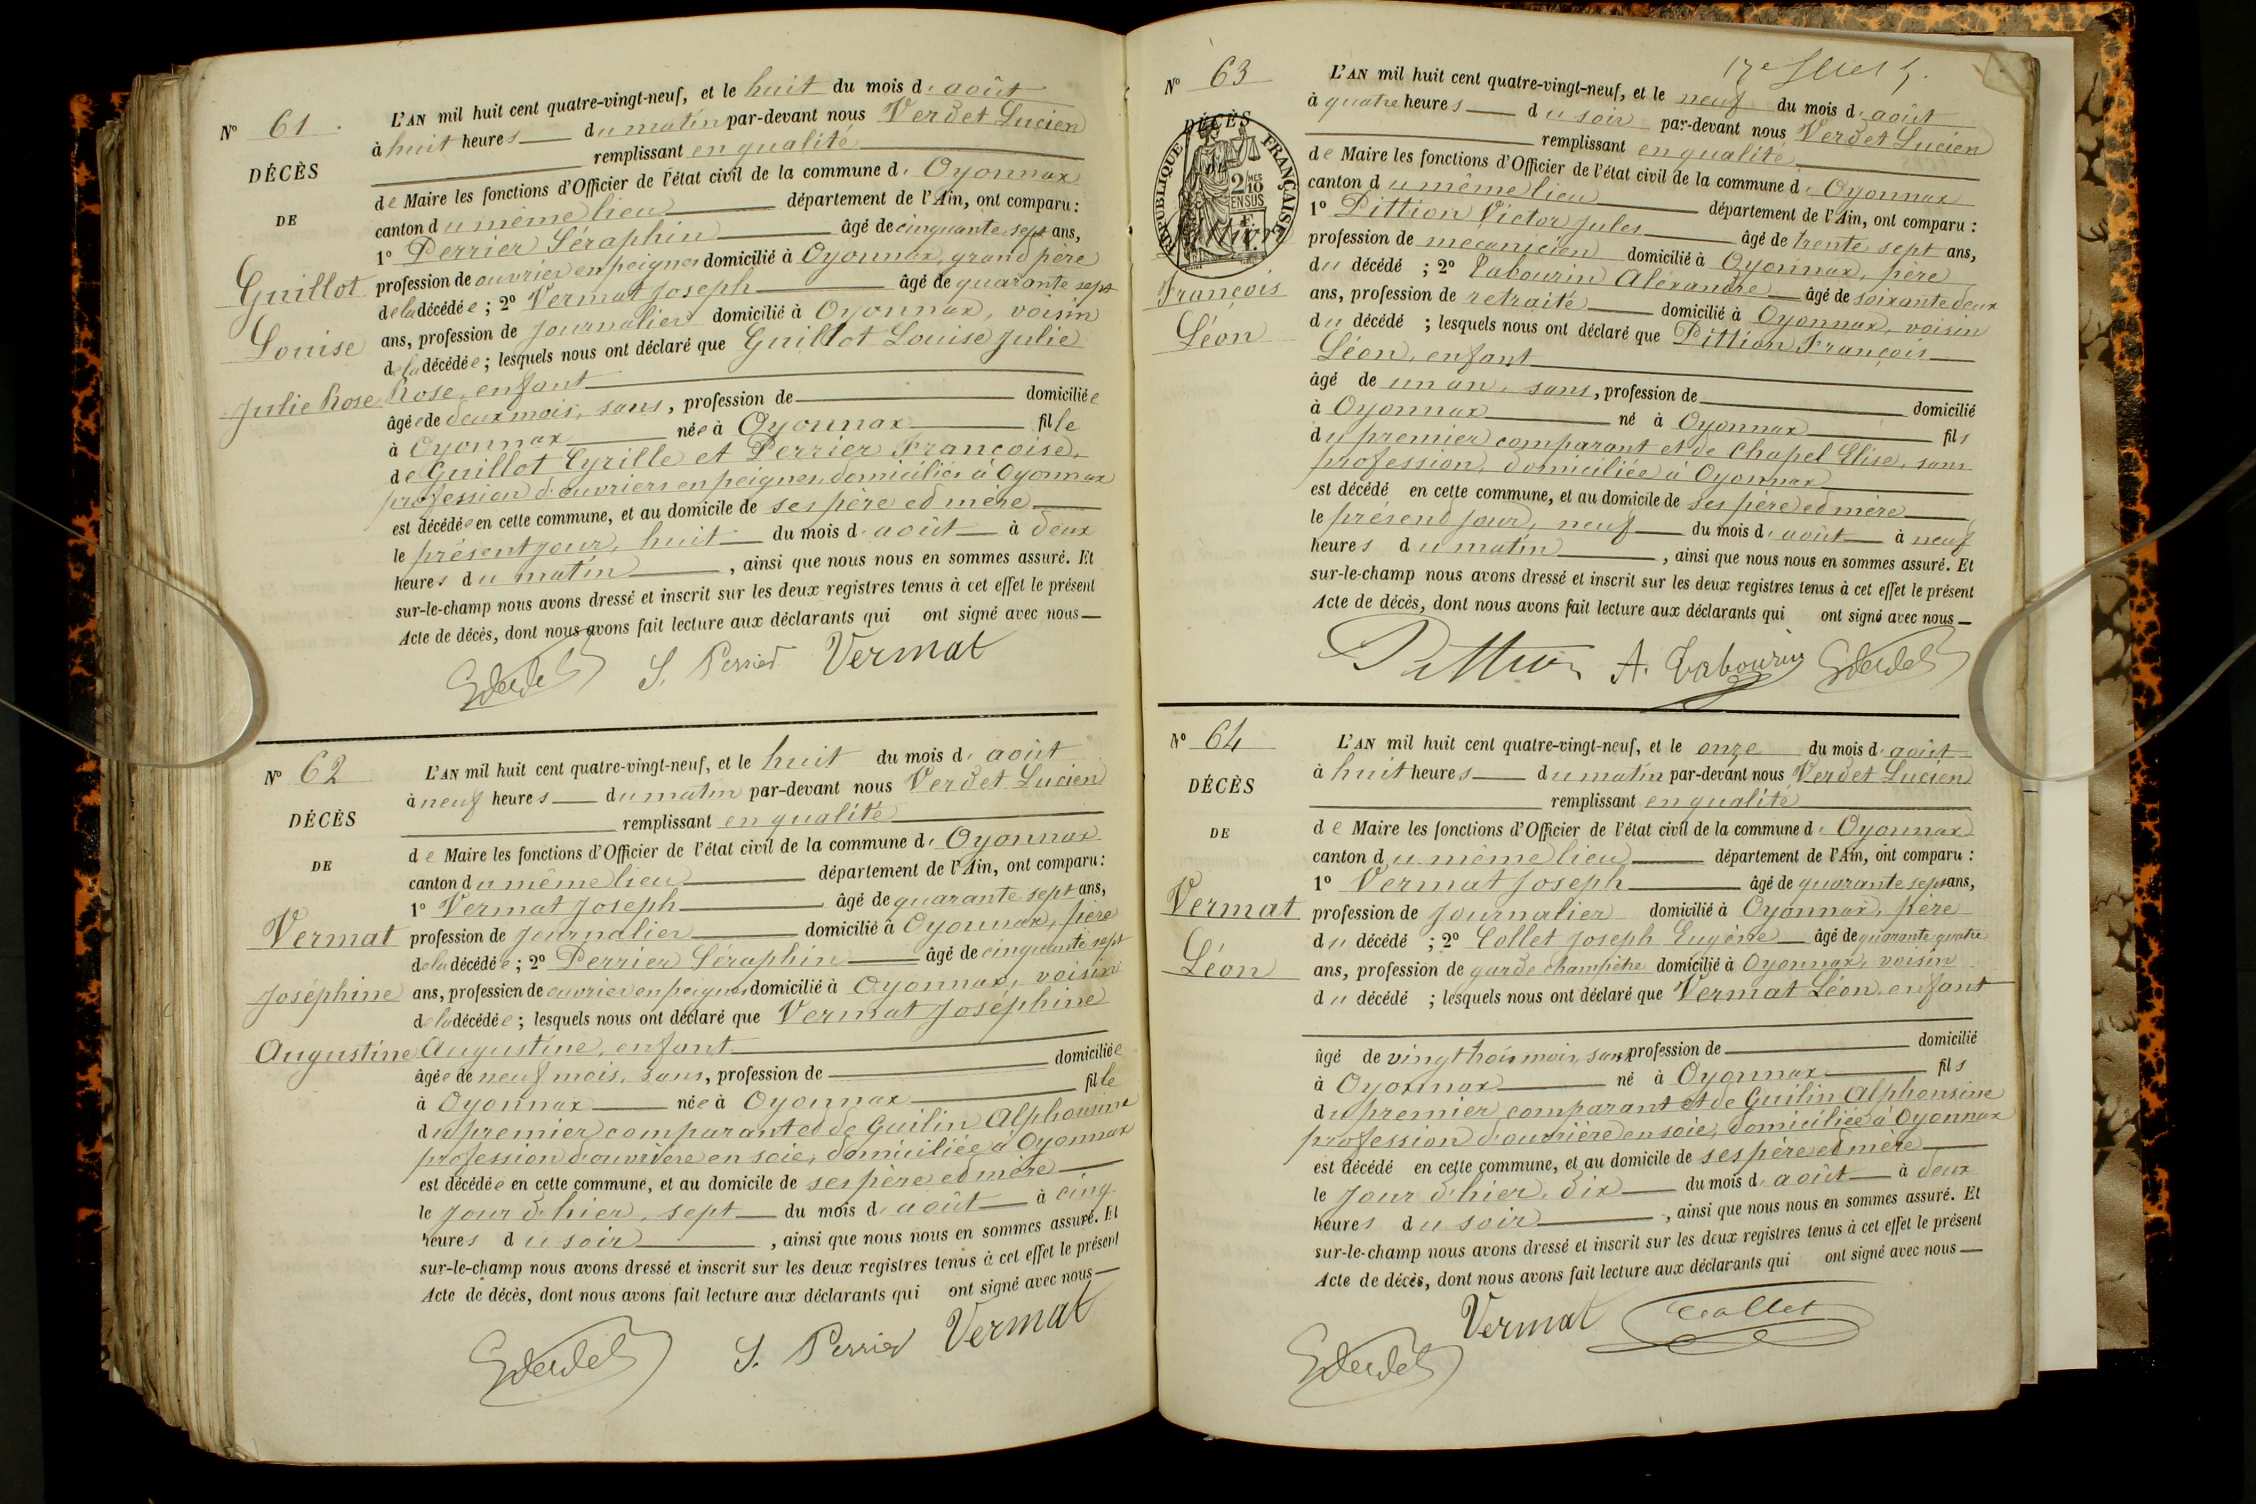 N° 61
DÉCÈS
DE
Guillot
Louise
Julie Rose
L'AN mil huit cent quatre-vingt-neuf, et le huit du mois d'août
à huit heures du matin par-devant nous Verdet Lucien
remplissant en qualité
de Maire les fonctions d'Officier de l'état civil de la commune d'Oyonnax
canton du même lieu département de l'Ain, ont comparu :
1° Perrier Séraphin âgé de cinquante sept ans,
profession de ouvrier en peignes domicilié à Oyonnax, grand père
de la décédée ; 2° Vermat Joseph âgé de quarante sept
ans, profession de journalier domicilié à Oyonnax, voisin
de la décédée ; lesquels nous ont déclaré que Guillot Louise Julie
Rose, enfant
âgée de deux mois, sans, profession de domiciliée
à Oyonnax née à Oyonnax fille
de Guillot Cyrille et Perrier Françoise,
profession d'ouvriers en peignes, domiciliés à Oyonnax
est décédée en cette commune, et au domicile de ses père et mère
le présent jour, huit du mois d'août à deux
heures du matin, ainsi que nous nous en sommes assuré. Et
sur-le-champ nous avons dressé et inscrit sur les deux registres tenus à cet effet le présent
Acte de décès, dont nous avons fait lecture aux déclarants qui ont signé avec nous
S. Perrier Vermat
N° 62
DÉCÈS
DE
Vermat
Joséphine
Augustine
L'AN mil huit cent quatre-vingt-neuf, et le huit du mois d'août
à neuf heures du matin par-devant nous Verdet Lucien
remplissant en qualité
de Maire les fonctions d'Officier de l'état civil de la commune d'Oyonnax
canton du même lieu département de l'Ain, ont comparu :
1° Vermat Joseph âgé de quarante sept ans,
profession de journalier domicilié à Oyonnax, père
de la décédée ; 2° Perrier Séraphin âgé de cinquante sept
ans, profession de ouvrier en peignes domicilié à Oyonnax, voisin
de la décédée ; lesquels nous ont déclaré que Vermat Joséphine
Augustine, enfant
âgée de neuf mois, sans, profession de domiciliée
à Oyonnax née à Oyonnax fille
du premier comparant et de Guilin Alphonsine
profession d'ouvrière en soie, domiciliée à Oyonnax
est décédée en cette commune, et au domicile de ses père et mère
le jour d'hier, sept du mois d'août à cinq
heures du soir, ainsi que nous nous en sommes assuré. Et
sur-le-champ nous avons dressé et inscrit sur les deux registres tenus à cet effet le présent
Acte de décès, dont nous avons fait lecture aux déclarants qui ont signé avec nous
S. Perrier Vermat
N° 63
DÉCÈS
RÉPUBLIQUE FRANÇAISE
2 MES 10 EN SUS
François
Léon
L'AN mil huit cent quatre-vingt-neuf, et le neuf du mois d'août
à quatre heures du soir par-devant nous Verdet Lucien
remplissant en qualité
de Maire les fonctions d'Officier de l'état civil de la commune d'Oyonnax
canton du même lieu département de l'Ain, ont comparu :
1° Pittion Victor Jules âgé de trente sept ans,
profession de mécanicien domicilié à Oyonnax, père
du décédé ; 2° Tabourin Aléxandre âgé de soixante deux
ans, profession de retraité domicilié à Oyonnax, voisin
du décédé ; lesquels nous ont déclaré que Pittion François
Léon, enfant
âgé de un an, sans, profession de domicilié
à Oyonnax né à Oyonnax fils
du premier comparant et de Chapel Elise, sans
profession, domiciliée à Oyonnax
est décédé en cette commune, et au domicile de ses père et mère
le présent jour, neuf du mois d'août à neuf
heures du matin, ainsi que nous nous en sommes assuré. Et
sur-le-champ nous avons dressé et inscrit sur les deux registres tenus à cet effet le présent
Acte de décès, dont nous avons fait lecture aux déclarants qui ont signé avec nous
Pittion A. Tabourin
N° 64
DÉCÈS
DE
Vermat
Léon
L'AN mil huit cent quatre-vingt-neuf, et le onze du mois d'août
à huit heures du matin par-devant nous Verdet Lucien
remplissant en qualité
de Maire les fonctions d'Officier de l'état civil de la commune d'Oyonnax
canton du même lieu département de l'Ain, ont comparu :
1° Vermat Joseph âgé de quarante sept ans,
profession de journalier domicilié à Oyonnax, père
du décédé ; 2° Collet Joseph Eugène âgé de quarante quatre
ans, profession de garde champêtre domicilié à Oyonnax, voisin
du décédé ; lesquels nous ont déclaré que Vermat Léon, enfant
âgé de vingt trois mois, sans, profession de domicilié
à Oyonnax né à Oyonnax fils
du premier comparant et de Guilin Alphonsine
profession d'ouvrière en soie, domiciliée à Oyonnax
est décédé en cette commune, et au domicile de ses père et mère
le jour d'hier, dix du mois d'août à deux
heures du soir, ainsi que nous nous en sommes assuré. Et
sur-le-champ nous avons dressé et inscrit sur les deux registres tenus à cet effet le présent
Acte de décès, dont nous avons fait lecture aux déclarants qui ont signé avec nous
Vermat Collet